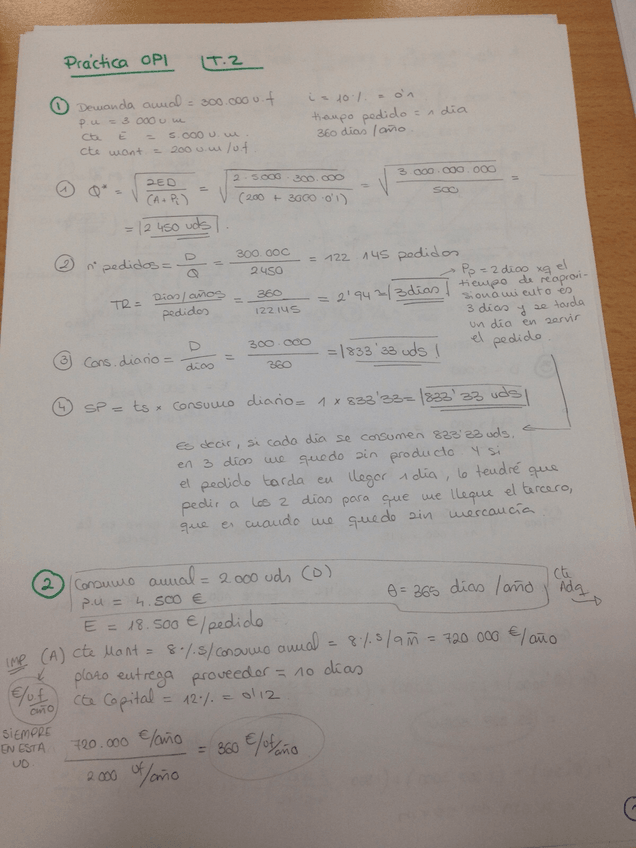 Práctica OPI T.2
① Demanda anual = 300.000 u.f i = 10% = 0'1
p.u = 3 000 u.m tiempo pedido = 1 dia
Cte E = 5.000 u.m. 360 dias/año.
Cte mant = 200 u.m/uf
① Q* = √(2ED / (A + Pi)) = √(2·5000·300.000 / (200 + 3000·0'1)) = √(3 000.000.000 / 500) =
= 2 450 uds.
② nº pedidos = D / Q = 300.000 / 2450 = 122 145 pedidos
TR = Dias/años / pedidos = 360 / 122145 = 2'94 ≈ 3 dias
→ Pp = 2 dias xq el
tiempo de reaprovi-
sionamiento es
3 dias y se tarda
un dia en servir
el pedido.
③ Cons. diario = D / dias = 300.000 / 360 = 833'33 uds
④ SP = ts × consumo diario = 1 × 833'33 = 833'33 uds
Es decir, si cada dia se consumen 833'33 uds.
en 3 dias me quedo sin producto y si
el pedido tarda en llegar 1 dia, lo tendré que
pedir a los 2 dias para que me llegue el tercero,
que es cuando me quedo sin mercancía.
② Consumo anual = 2.000 uds (D)
p.u = 4.500 € θ = 365 dias/año Cte Adq →
E = 18.500 €/pedido
IMP. (A) Cte Mant = 8% s/consumo anual = 8% s/9 m̄ = 720 000 €/año
plazo entrega proveedor = 10 dias
€/uf/año Cte Capital = 12% = 0'12
SIEMPRE
EN ESTA
UD.
720.000 €/año / 2 000 uf/año = 360 €/uf/año